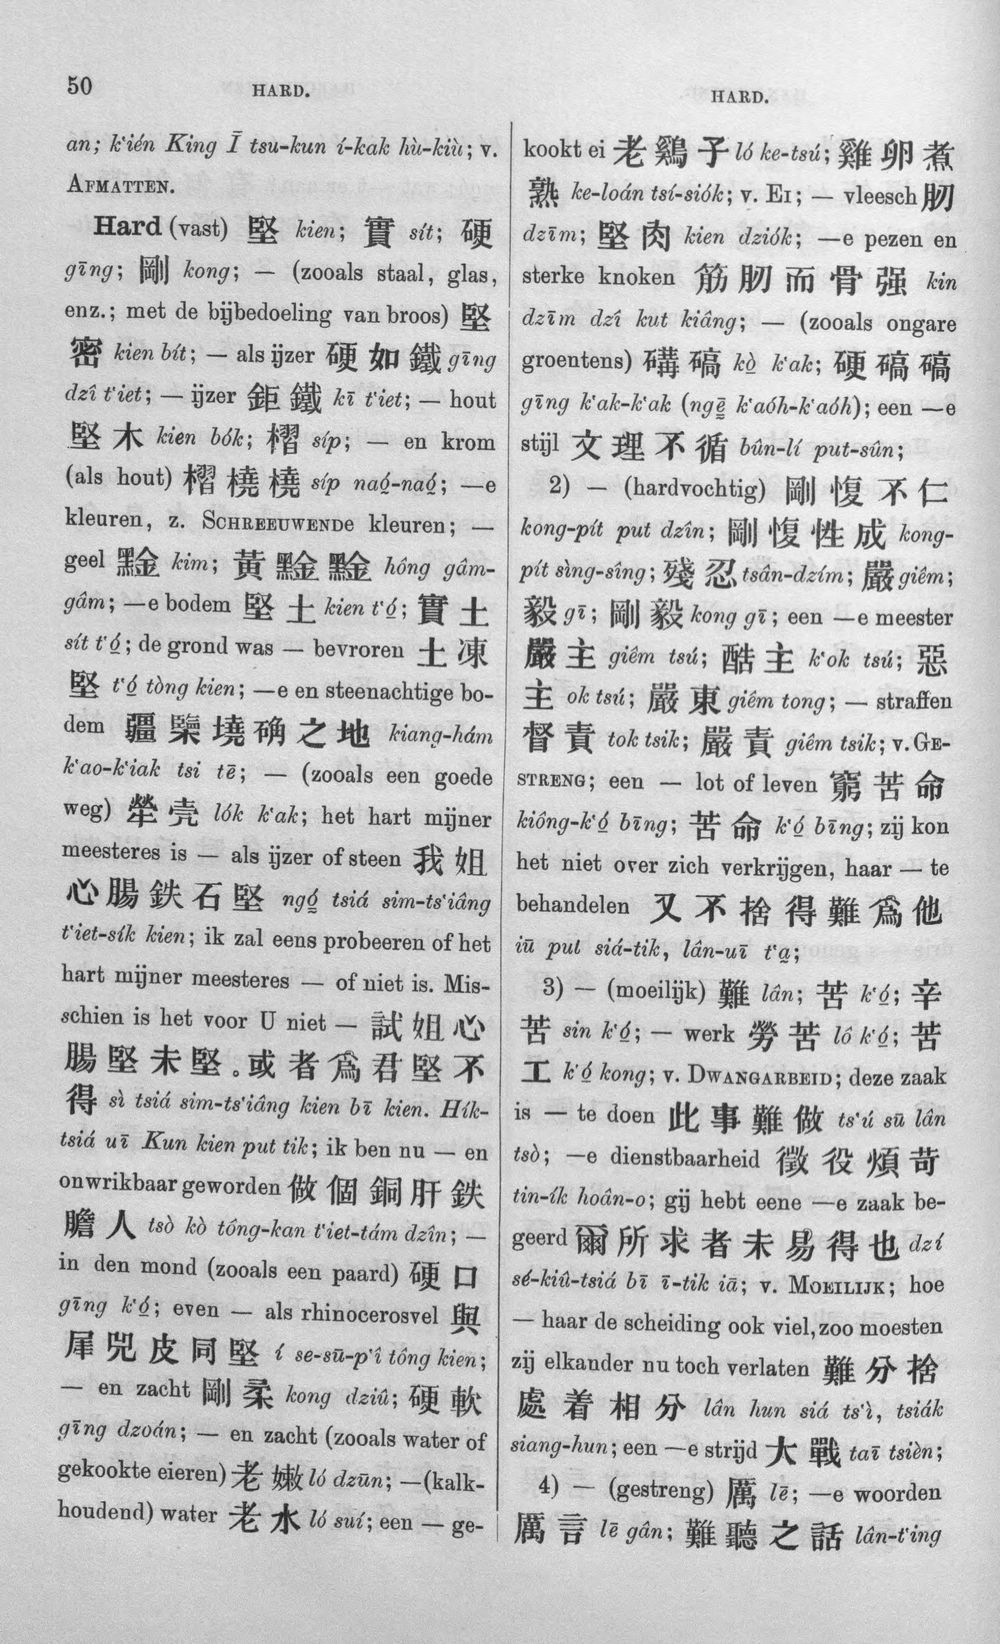 50
HARD.
HARD.
an; k‘ién King Ī tsu-kun í-kak hù-kiù; v.
AFMATTEN.
Hard (vast) 堅 kien; 實 sít; 硬
gīng; 剛 kong; — (zooals staal, glas,
enz.; met de bijbedoeling van broos) 堅
密 kien bít; — als ijzer 硬如鐵 gīng
dzî t‘iet; — ijzer 鉅鐵 kī t‘iet; — hout
堅木 kien bók; 槢 síp; — en krom
(als hout) 槢橈橈 síp naó-naó; —e
kleuren, z. SCHREEUWENDE kleuren; —
geel 黅 kim; 黃黅黅 hông gâm-
gâm; —e bodem 堅土 kien t‘ó; 實土
sít t‘ó; de grond was — bevroren 土凍
堅 t‘ó tòng kien; —e en steenachtige bo-
dem 疆㯺墝确之地 kiang-hám
k‘ao-k‘iak tsi tē; — (zooals een goede
weg) 犖壳 lók k‘ak; het hart mijner
meesteres is — als ijzer of steen 我姐
心腸鉄石堅 ngó tsiá sim-ts‘iâng
t‘iet-sík kien; ik zal eens probeeren of het
hart mijner meesteres — of niet is. Mis-
schien is het voor U niet — 試姐心
腸堅未堅。或者爲君堅不
得 sì tsiá sim-ts‘iâng kien bī kien. Hík-
tsiá uī Kun kien put tik; ik ben nu — en
onwrikbaar geworden 做個銅肝鉄
膽人 tsò kò tóng-kan t‘iet-tám dzîn; —
in den mond (zooals een paard) 硬口
gīng k‘ó; even — als rhinocerosvel 與
犀兕皮同堅 í se-sū-p‘î tông kien;
— en zacht 剛柔 kong dziû; 硬軟
gīng dzoán; — en zacht (zooals water of
gekookte eieren) 老嫩 ló dzūn; —(kalk-
houdend) water 老水 ló suí; een — ge-
kookt ei 老鷄子 ló ke-tsú; 雞卵煮
熟 ke-loán tsí-siók; v. EI; — vleesch 肕
dzīm; 堅肉 kien dziók; —e pezen en
sterke knoken 筋肕而骨强 kin
dzīm dzî kut kiâng; — (zooals ongare
groentens) 磚碻 kò k‘ak; 硬碻碻
gīng k‘ak-k‘ak (ngē k‘aóh-k‘aóh); een —e
stijl 文理不循 bûn-lí put-sûn;
2) — (hardvochtig) 剛愎不仁
kong-pít put dzîn; 剛愎性成 kong-
pít sìng-sîng; 殘忍 tsân-dzím; 嚴 giêm;
毅 gī; 剛毅 kong gī; een —e meester
嚴主 giêm tsú; 酷主 k‘ok tsú; 惡
主 ok tsú; 嚴東 giêm tong; — straffen
督責 tok tsik; 嚴責 giêm tsik; v. GE-
STRENG; een — lot of leven 窮苦命
kiông-k‘ó bīng; 苦命 k‘ó bīng; zij kon
het niet over zich verkrijgen, haar — te
behandelen 又不捨得難爲他
iū put siá-tik, lân-uī t‘a;
3) — (moeilijk) 難 lân; 苦 k‘ó; 辛
苦 sin k‘ó; — werk 勞苦 lô k‘ó; 苦
工 k‘ó kong; v. DWANGARBEID; deze zaak
is — te doen 此事難做 ts‘ú sū lân
tsò; —e dienstbaarheid 徵役煩苛
tin-ík hoân-o; gij hebt eene —e zaak be-
geerd 爾所求者未易得也 dzí
sé-kiû-tsiá bī ī-tik iā; v. MOEILIJK; hoe
— haar de scheiding ook viel, zoo moesten
zij elkander nu toch verlaten 難分捨
處着相分 lân hun siá ts‘ì, tsiák
siang-hun; een —e strijd 大戰 taī tsièn;
4) — (gestreng) 厲 lē; —e woorden
厲言 lē gân; 難聽之話 lân-t‘ing